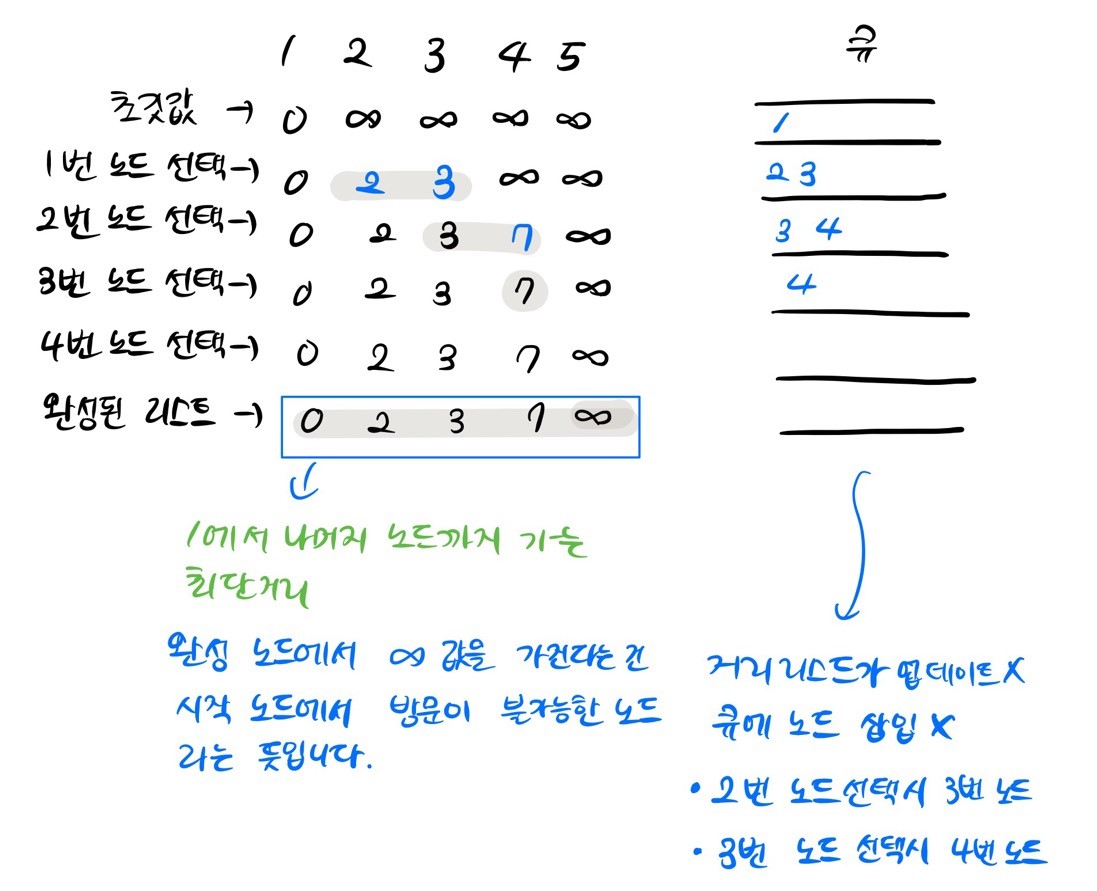 1 2 3 4 5
큐
초깃값 → 0 ∞ ∞ ∞ ∞
1
1번 노드 선택→ 0 2 3 ∞ ∞
2 3
2번 노드 선택→ 0 2 3 7 ∞
3 4
3번 노드 선택→ 0 2 3 7 ∞
4
4번 노드 선택→ 0 2 3 7 ∞
완성된 리스트 → 0 2 3 7 ∞
1에서 나머지 노드까지 가는
최단거리
완성 노드에서 ∞ 값을 가진다는 건
시작 노드에서 방문이 불가능한 노드
라는 뜻입니다.
거리 리스트가 업데이트 X
큐에 노드 삽입 X
• 2번 노드 선택시 3번 노드
• 3번 노드 선택시 4번 노드